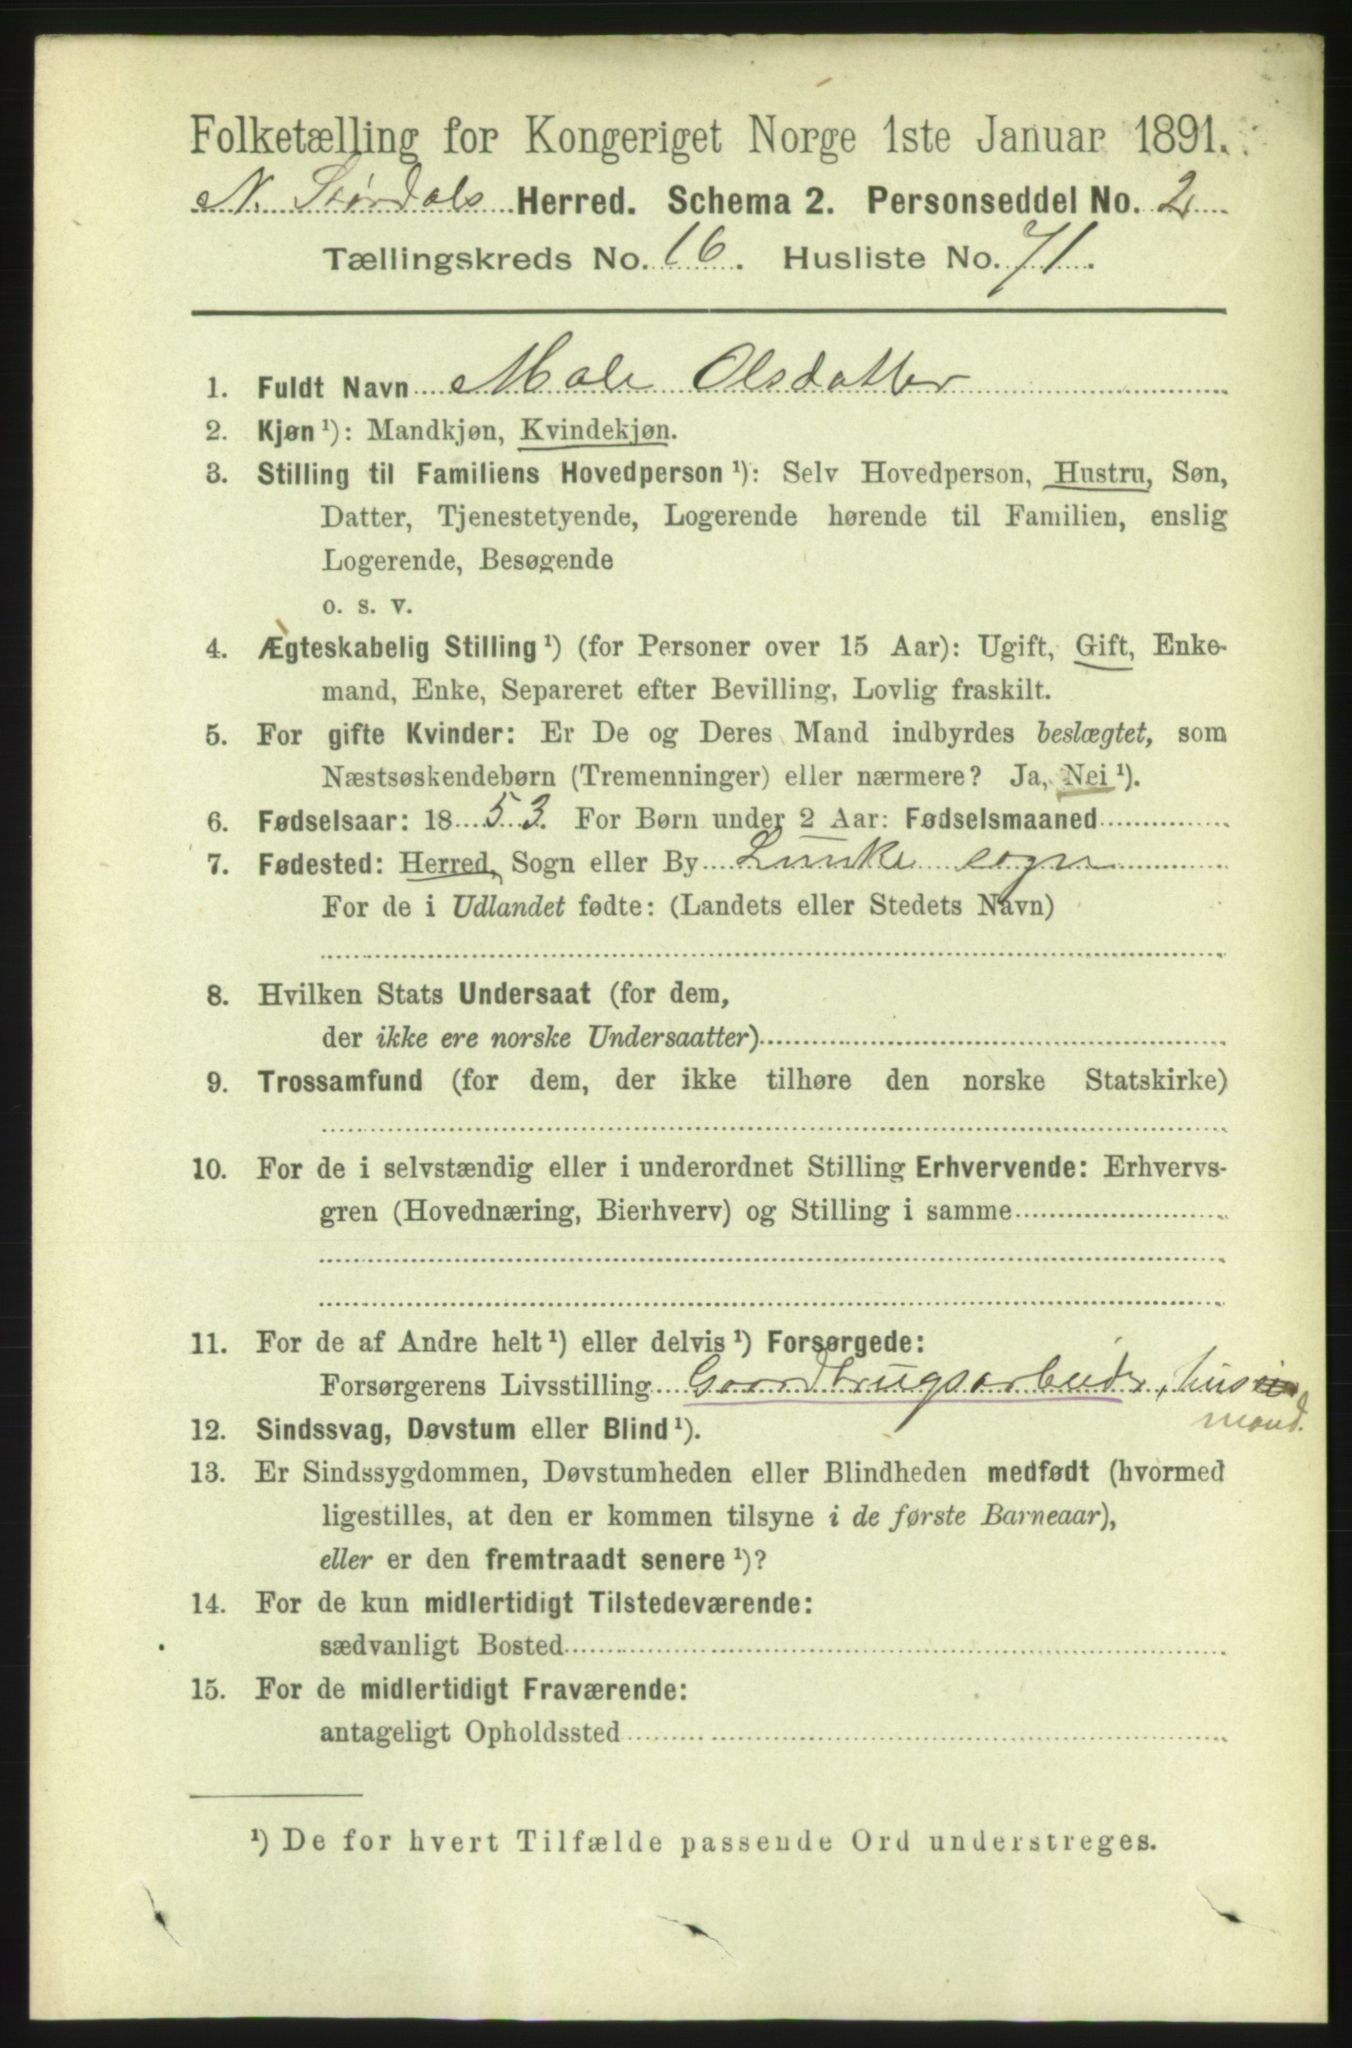 Folketælling for Kongeriget Norge 1ste Januar 1891.
N. Størdals Herred. Schema 2. Personseddel No. 2
Tællingskreds No. 16. Husliste No. 71.
1. Fuldt Navn Male Olsdatter
2. Kjøn ¹): Mandkjøn, Kvindekjøn.
3. Stilling til Familiens Hovedperson ¹): Selv Hovedperson, Hustru, Søn,
Datter, Tjenestetyende, Logerende hørende til Familien, enslig
Logerende, Besøgende
o. s. v.
4. Ægteskabelig Stilling ¹) (for Personer over 15 Aar): Ugift, Gift, Enke-
mand, Enke, Separeret efter Bevilling, Lovlig fraskilt.
5. For gifte Kvinder: Er De og Deres Mand indbyrdes beslægtet, som
Næstsøskendebørn (Tremenninger) eller nærmere? Ja, Nei ¹).
6. Fødselsaar: 1853. For Børn under 2 Aar: Fødselsmaaned
7. Fødested: Herred, Sogn eller By Lunke sogn
For de i Udlandet fødte: (Landets eller Stedets Navn)
8. Hvilken Stats Undersaat (for dem,
der ikke ere norske Undersaatter)
9. Trossamfund (for dem, der ikke tilhøre den norske Statskirke)
10. For de i selvstændig eller i underordnet Stilling Erhvervende: Erhvervs-
gren (Hovednæring, Bierhverv) og Stilling i samme
11. For de af Andre helt ¹) eller delvis ¹) Forsørgede:
Forsørgerens Livsstilling Gaardbrugsarbeider, hus
mand.
12. Sindssvag, Døvstum eller Blind ¹).
13. Er Sindssygdommen, Døvstumheden eller Blindheden medfødt (hvormed
ligestilles, at den er kommen tilsyne i de første Barneaar),
eller er den fremtraadt senere ¹)?
14. For de kun midlertidigt Tilstedeværende:
sædvanligt Bosted
15. For de midlertidigt Fraværende:
antageligt Opholdssted
¹) De for hvert Tilfælde passende Ord understreges.